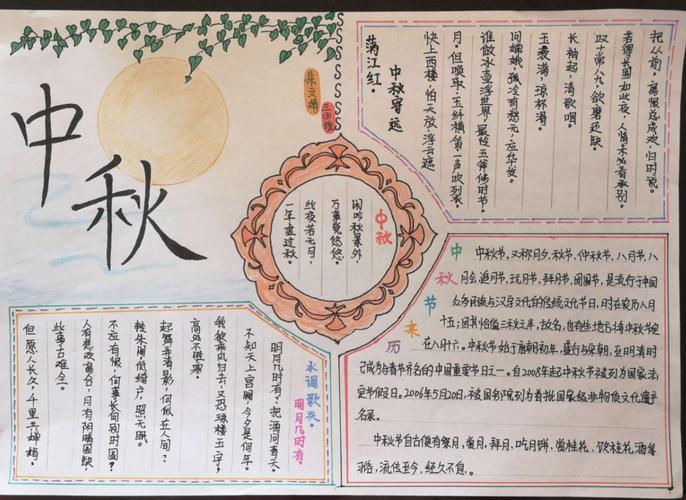 中秋
三③班
满江红。
中秋寄远
快上西楼，怕天放浮云遮
月。但唤取、玉纤横笛，一声吹裂。
谁做冰壶浮世界，最怜玉斧修时节。
问嫦娥、孤冷有愁无，应华发。
玉液满，琼杯滑。
长袖起，清歌咽。
叹十常八九，欲磨还缺。
若得长圆如此夜，人情未必看承别。
把从前、离恨总成欢，归时说。
中秋
闲吟秋景外，
万事觉悠悠。
此夜若无月，
一年虚过秋。
水调歌头。
明月几时有
明月几时有？把酒问青天。
不知天上宫阙，今夕是何年。
我欲乘风归去，又恐琼楼玉宇，
高处不胜寒。
起舞弄清影，何似在人间？
转朱阁，低绮户，照无眠。
不应有恨，何事长向别时圆？
人有悲欢离合，月有阴晴圆缺，
此事古难全。
但愿人长久，千里共婵娟。
中秋节来历
中秋节，又称月夕、秋节、仲秋节、八月节、八
月会、追月节、玩月节、拜月节、团圆节，是流行于中国
众多民族与汉字文化的传统文化节日，时在农历八月
十五；因其恰值三秋之半，故名，也有些地方将中秋节定
在八月十六。中秋节始于唐朝初年，盛行与宋朝，至明清时
已成为与春节齐名的中国重要节日之一。自2008年起中秋节被列为国家法
定节假日。2006年5月20日，被国务院列为首批国家级非物质文化遗产
名录。
中秋节自古便有祭月、赏月、拜月、吃月饼、赏桂花、饮桂花酒等
习俗，流传至今，经久不息。